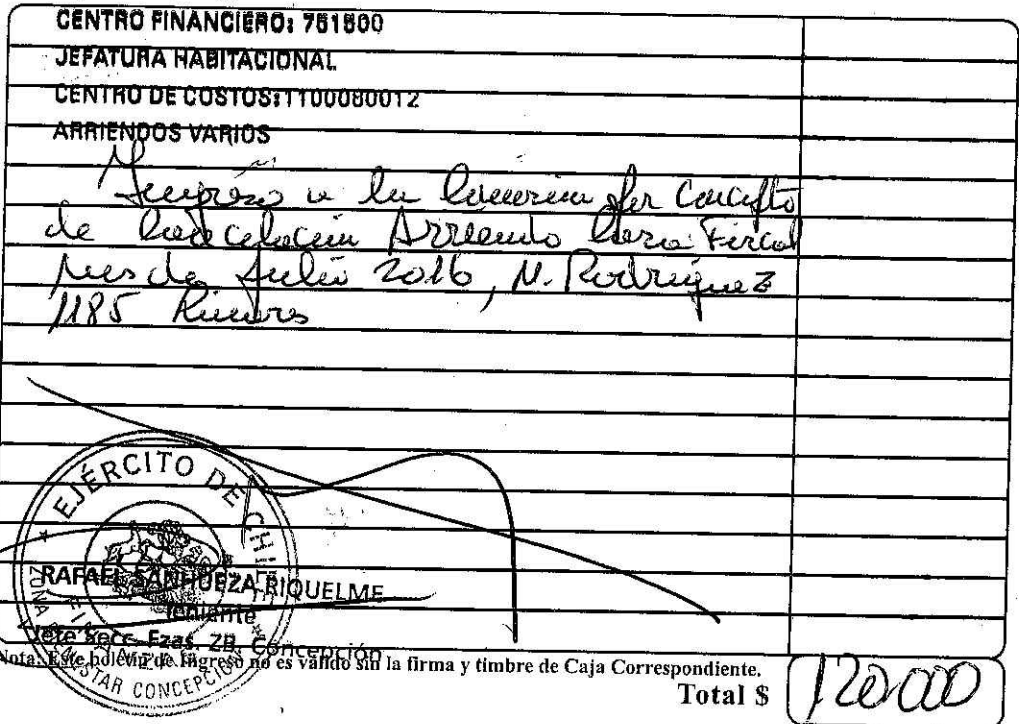 CENTRO FINANCIERO: 751500
JEFATURA HABITACIONAL
CENTRO DE COSTOS:1100080012
ARRIENDOS VARIOS
Ingreso a la Comisión por Concepto
de Cancelación Arriendo Casa Fiscal
mes de Julio 2016, M. Rodriguez
1185
EJÉRCITO DE CHILE
RAFAEL SANHUEZA RIQUELME
Teniente
Jefe Secc. Fzas. ZB. Concepción
Nota: Este boletín de Ingreso no es válido sin la firma y timbre de Caja Correspondiente.
Total $ 120.000